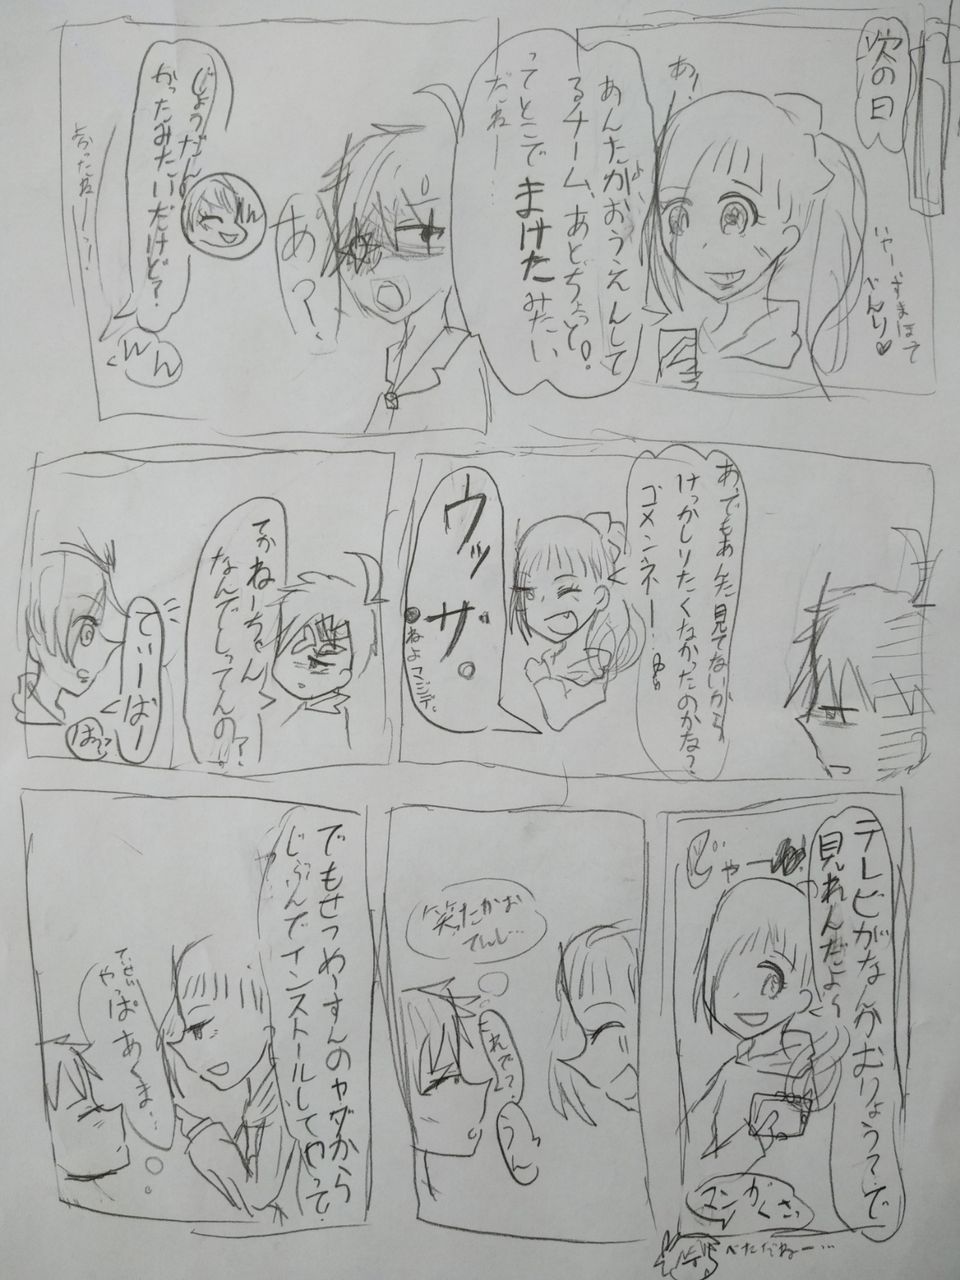 次の日
いやーすまほで
べんり♡
あ!
あんたがおうえんして
るチーム、あとちょっと
ってとこでまけたみたい
だねー
あ?
じょうだん
かったみたいだけど?
よかったねー
あ、でもあんた見てないから
けっかしりたくなかったのかな?
ゴメンネー!
ウッザ。
てかねーちゃん
なんでしってんの?
てぃーばー
はっ?
テレビがなんかおりょうって。で
見れんだよ〜
じゃーん
マンがくさっ
へただねー…
笑ったかお
てんし…
それで?
うん
でもせつめーすんのヤダから
じぶんでインストールしてやって
やっぱあくま…